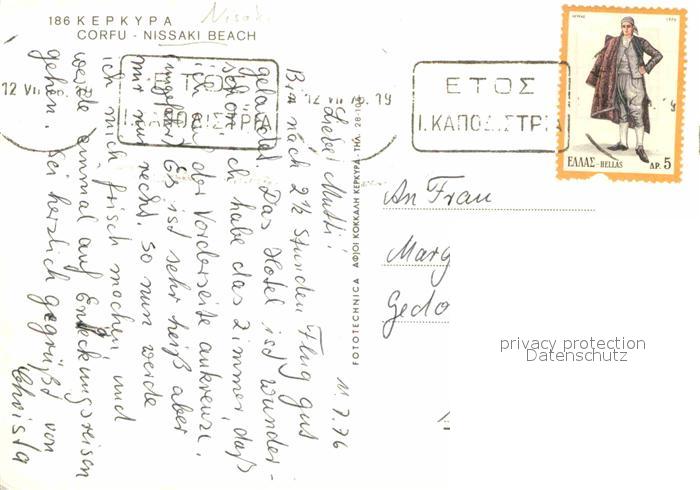 186 ΚΕΡΚΥΡΑ
CORFU - NISSAKI BEACH
Nissaki
12 VII
ΕΤΟΣ
Ι.ΚΑΠΟΔΙΣΤΡΙΑ
12 VII 76.19
ΕΤΟΣ
Ι.ΚΑΠΟΔΙΣΤΡΙΑ
ΕΛΛΑΣ-HELLAS ΔΡ. 5
11.7.76
Liebe Mutti!
Bin nach 2½ Stunden Flug gut
gelandet. Das Hotel ist wunder-
schön. Ich habe das Zimmer, daß
ich auf der Vorderseite ankreuze.
Es ist sehr heiß aber
mir nur recht. So nun werde
ich mich frisch machen und
werde einmal auf Endeckungsreisen
gehen. Sei herzlich gegrüßt von
Christa
FOTOTECHNICA ΑΦΙΟΙ ΚΟΚΚΑΛΗ ΚΕΡΚΥΡΑ-ΤΗΛ. 28-108
An Frau
Marg
Gedo
privacy protection
Datenschutz